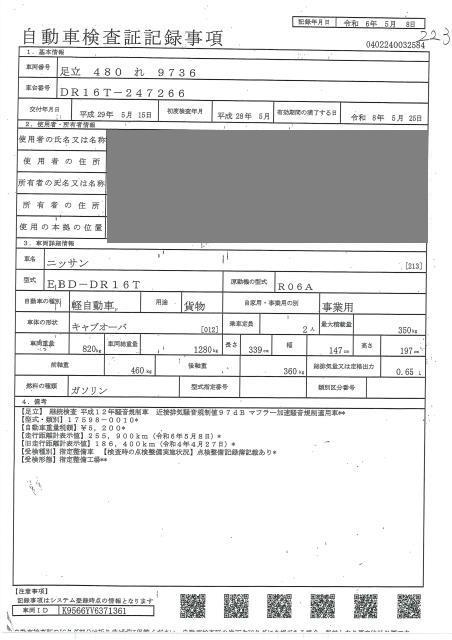 記録年月日 令和 6年 5月 8日
自動車検査証記録事項
223
0402240032584
1. 基本情報
車両番号 足立 480 れ 9736
車台番号 DR16T-247266
交付年月日 平成 29年 5月 15日 初度検査年月 平成 28年 5月 有効期間の満了する日 令和 8年 5月 25日
2. 使用者・所有者情報
使用者の氏名又は名称
使用者の住所
所有者の氏名又は名称
所有者の住所
使用の本拠の位置
3. 車両詳細情報
車名 ニッサン [213]
型式 EBD-DR16T 原動機の型式 R06A
自動車の種別 軽自動車 用途 貨物 自家用・事業用の別 事業用
車体の形状 キャブオーバ [012] 乗車定員 2人 最大積載量 350kg
車両重量 820kg 車両総重量 1280kg 長さ 339cm 幅 147cm 高さ 197cm
前軸重 460kg 後軸重 360kg 総排気量又は定格出力 0.65 L
燃料の種類 ガソリン 型式指定番号 類別区分番号
4. 備考
【足立】 継続検査 平成12年騒音規制車 近接排気騒音規制値97dB マフラー加速騒音規制適用車**
【型式・類別】17598-0010*
【自動車重量税額】¥5,200*
【走行距離計表示値】255,900km (令和6年5月8日)*
【旧走行距離計表示値】186,400km (令和4年4月27日)*
【受検種別】指定整備車 【検査時の点検整備実施状況】点検整備記録簿記載あり*
【受検形態】指定整備工場**
【注意事項】
記録事項はシステム登録時点の情報となります
車両ID K9566YV6371361